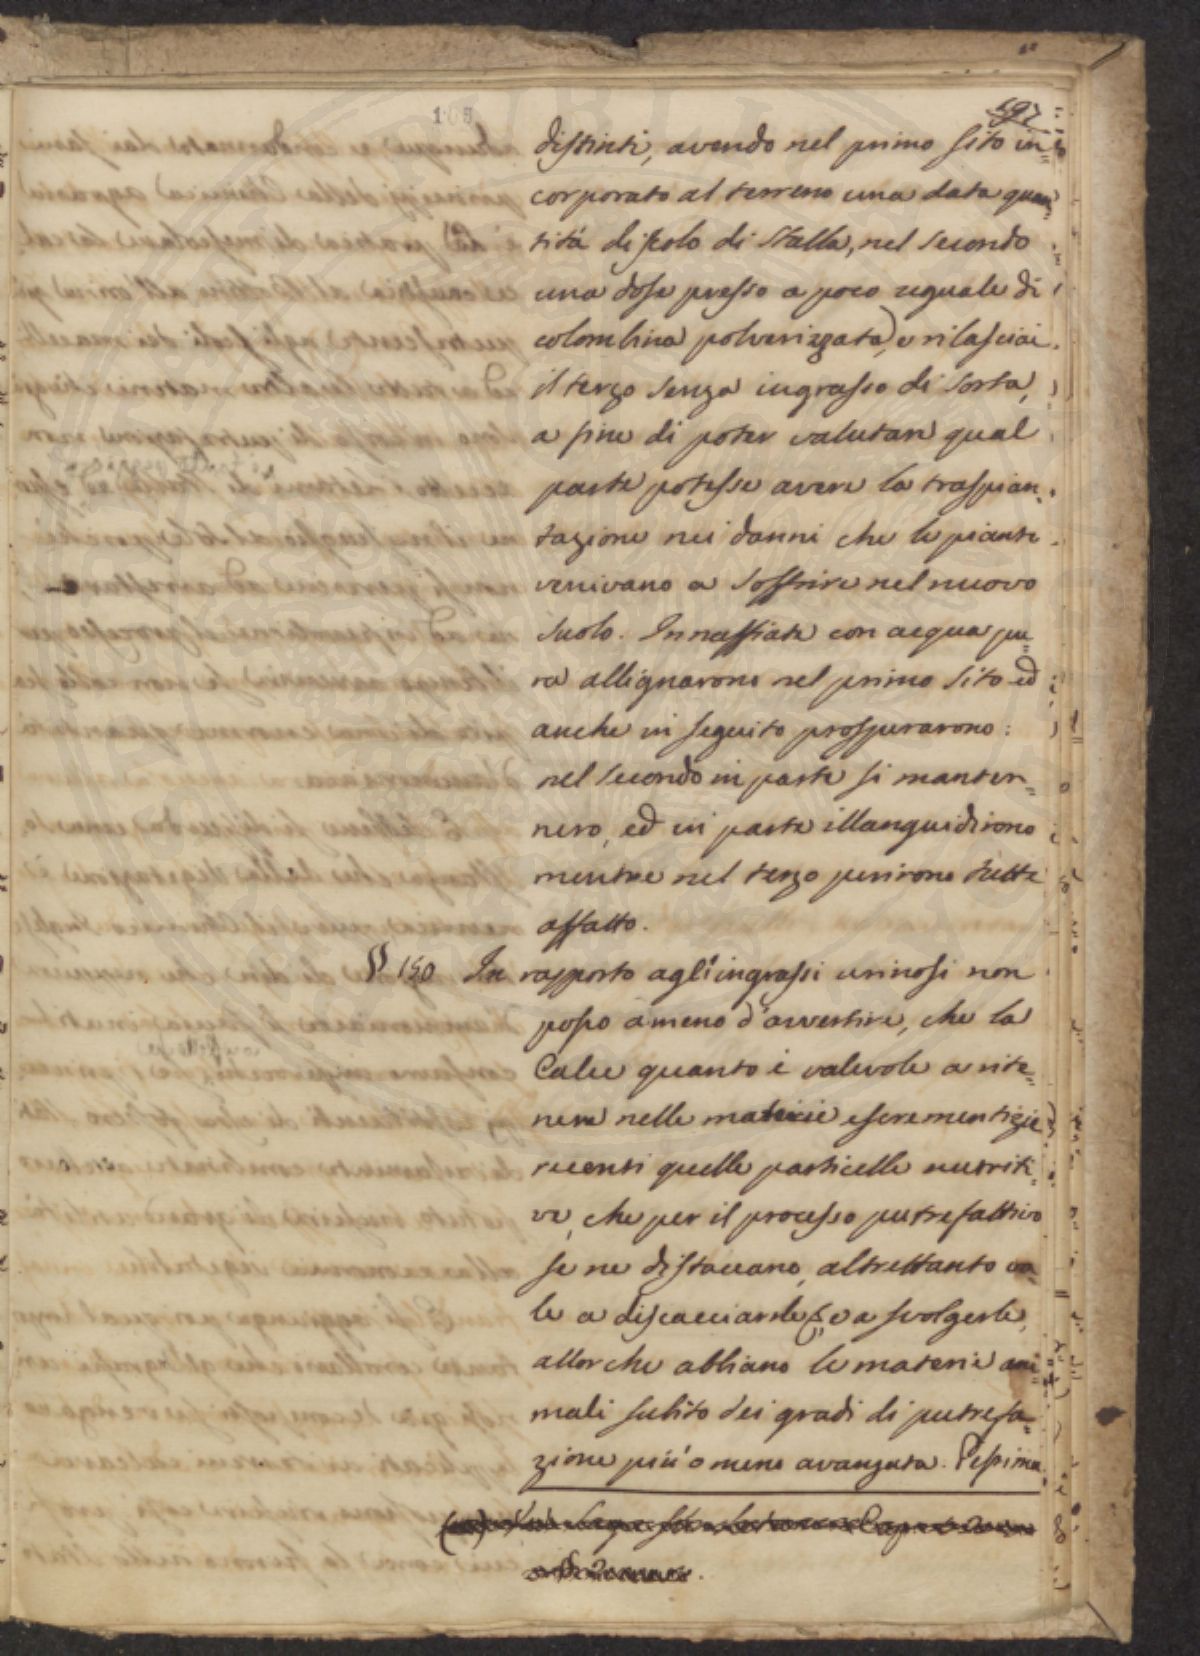 197
distinti, avendo nel primo sito in=
corporato al terreno una data quan=
titá di scolo di Stalla, nel secondo
una dose presso a poco uguale di
colombina polverizzata, e rilasciai
il terzo senza ingrasso di sorta,
a fine di poter valutare qual
parte potesse avere la traspian=
tazione nei danni che le piante
venivano a soffrire nel nuovo
suolo. Innaffiate con acqua pu=
ra allignarono nel primo sito ed
anche in seguito prosperarono:
nel secondo in parte si manten=
nero, ed in parte illanguidirono
mentre nel terzo perirono tutte
affatto.
§ 150 In rapporto agl'ingrassi urinosi non
posso a meno d'avvertire, che la
Calce quanto è valevole a rite=
nere nelle materie escrementizie
recenti quelle particelle nutriti=
ve, che per il processo putrefattivo
se ne distaccano, altrettanto va=
le a discacciarle, e a svolgerle,
allorche abbiano le materie ani=
mali subito dei gradi di putrefa=
zione piú o meno avanzata. Pessima